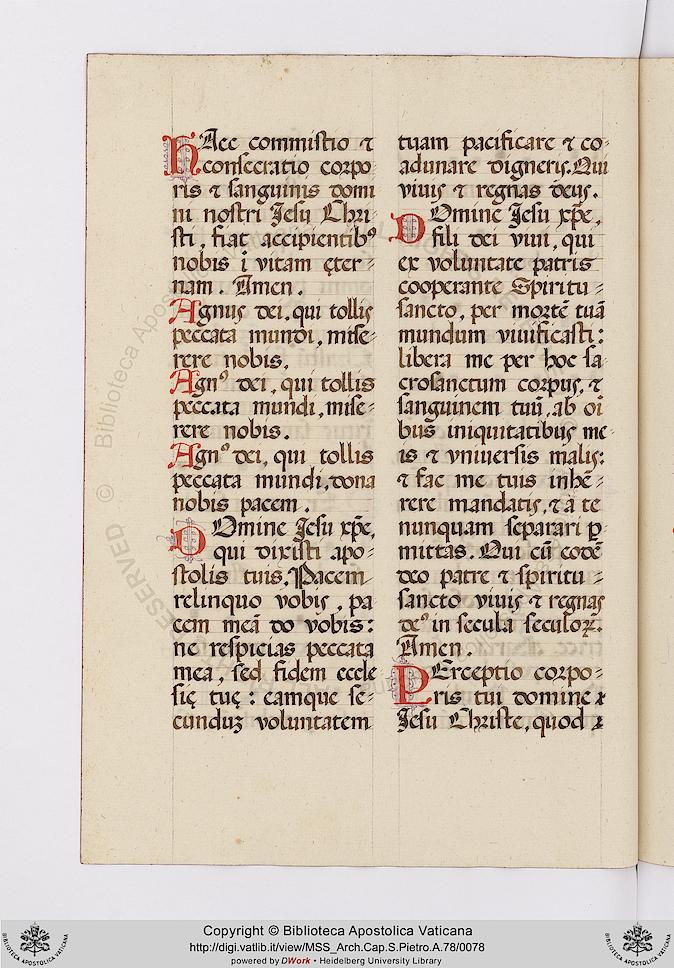 HAec commistio ⁊
consecratio corpo
ris ⁊ sanguinis domi
ni nostri Jesu Chri-
sti, fiat accipientibꝰ
nobis ī vitam ęter-
nam. Amen.
Agnus dei, qui tollis
peccata mundi, mise-
rere nobis.
Agnꝰ dei, qui tollis
peccata mundi, mise-
rere nobis.
Agnꝰ dei, qui tollis
peccata mundi, dona
nobis pacem.
DOmine Jesu xp̄e,
qui dixisti apo-
stolis tuis. Pacem
relinquo vobis, pa
cem meā do vobis:
ne respicias peccata
mea, sed fidem eccle
się tuę: eamque se-
cunduꝫ voluntatem
tuam pacificare ⁊ co-
adunare digneris. Qui
viuis ⁊ regnas deus.
DOmine Jesu xp̄e,
fili dei viui, qui
ex voluntate patris
cooperante Spiritu-
sancto, per mortē tuā
mundum viuificasti:
libera me per hoc sa
crosanctum corpus, ⁊
sanguinem tuū, ab oī
bus iniquitatibus me-
is ⁊ vniuersis malis:
⁊ fac me tuis inhę-
rere mandatis, ⁊ a te
nunquam separari ꝑ-
mittas. Qui cū eodē
deo patre ⁊ spiritu-
sancto viuis ⁊ regnas
deꝰ in secula seculoꝝ.
Amen.
PErceptio corpo-
ris tui domine
Jesu Christe, quod
© Biblioteca Apostolica
RESERVED
BIBLIOTECA APOSTOLICA VATICANA
Copyright © Biblioteca Apostolica Vaticana
http://digi.vatlib.it/view/MSS_Arch.Cap.S.Pietro.A.78/0078
powered by DWork • Heidelberg University Library
BIBLIOTECA APOSTOLICA VATICANA